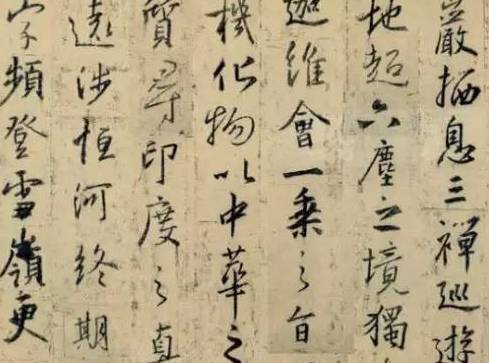 嚴栖息三禪巡遊
地超六塵之境獨
迦維會一乘之旨
機化物以中華之
質尋印度之真
遠涉恒河終期
字頻登雪嶺更